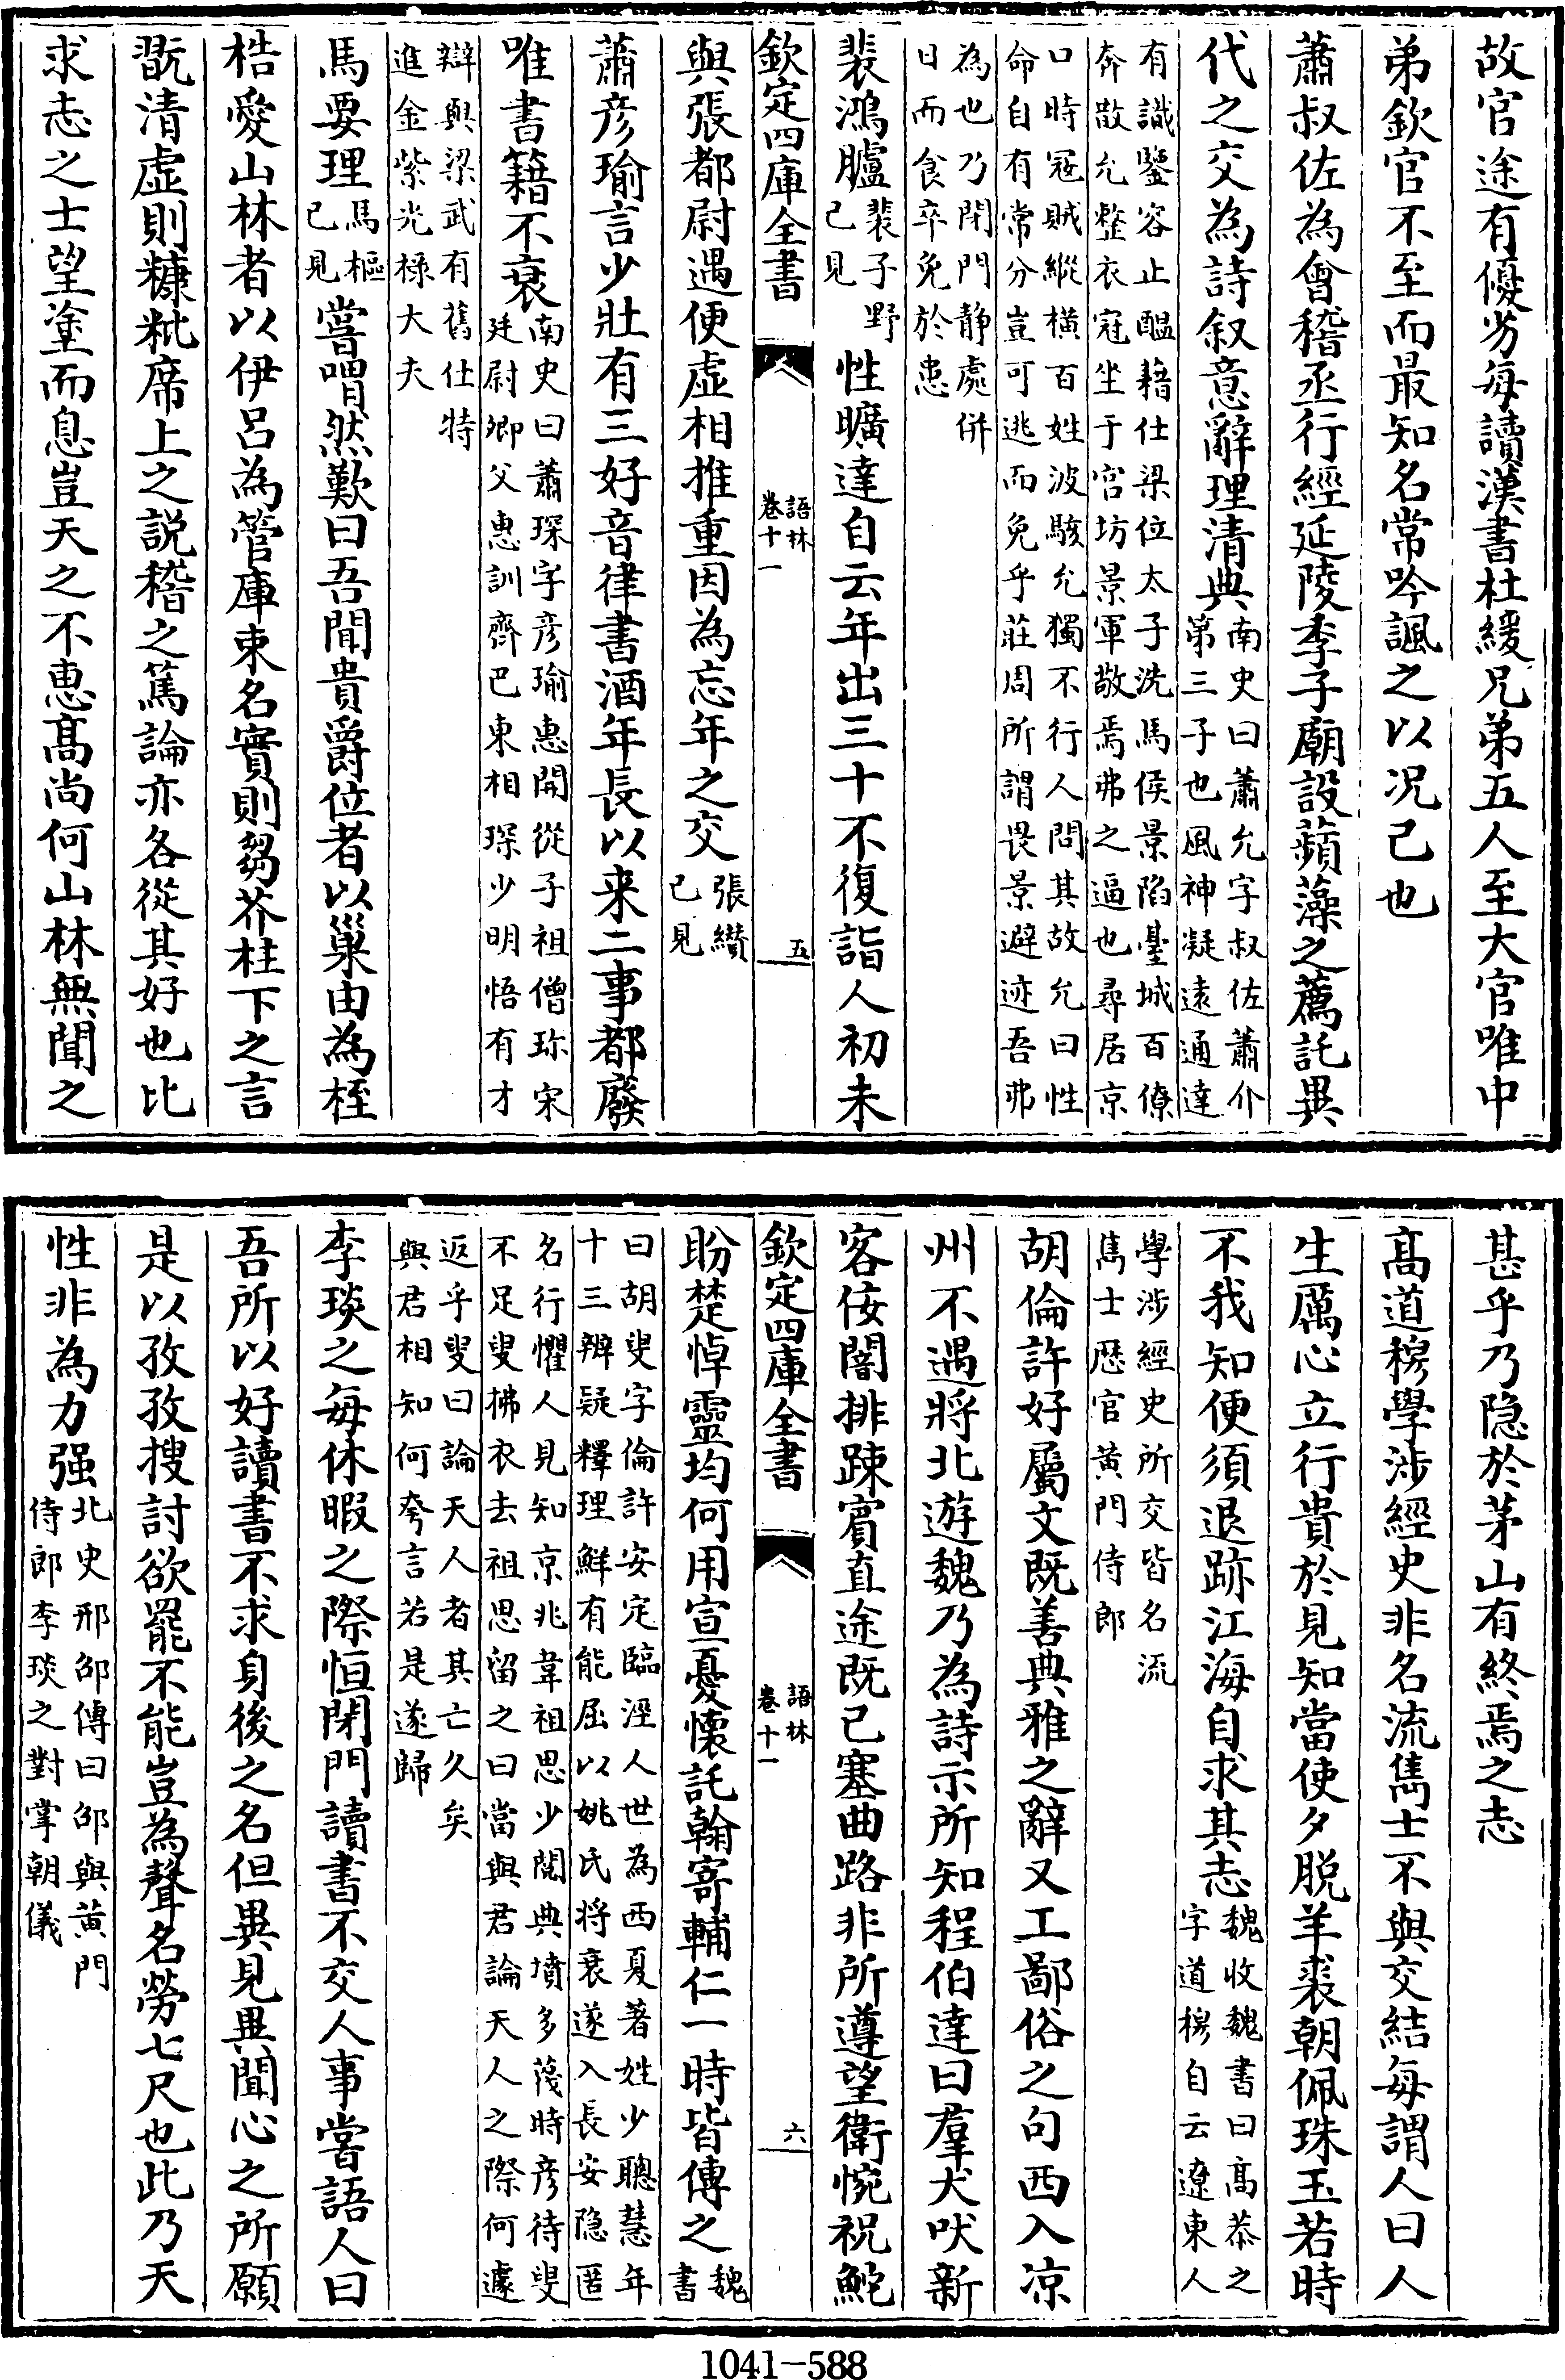 故官途有優劣每讀漢書杜緩兄弟五人至大官唯中
弟欽官不至而最知名常吟諷之以况己也
蕭叔佐為會稽丞行經延陵季子廟設蘋藻之薦託異
代之交為詩叙意辭理清典南史曰蕭允字叔佐蕭介第三子也風神凝遠通達
有識鑒容止醖藉仕梁位太子洗馬侯景陷臺城百僚奔散允整衣冠坐于宫坊景軍敬焉弗之逼也尋居京
口時寇賊縱横百姓波駭允獨不行人問其故允曰性命自有常分豈可逃而免乎莊周所謂畏景避迹吾弗
為也乃閉門静處併日而食卒免於患
裴鴻臚裴子野已見性曠達自云年出三十不復詣人初未
欽定四庫全書 語林卷十一 五
與張都尉遇便虚相推重因為忘年之交張纘已見
蕭彦瑜言少壯有三好音律書酒年長以来二事都廢
唯書籍不衰南史曰蕭琛字彦瑜惠開從子祖僧珍宋廷尉卿父惠訓齊巴東相琛少明悟有才
辯與梁武有舊仕特進金紫光禄大夫
馬要理馬樞已見嘗喟然歎曰吾聞貴爵位者以巢由為桎
梏愛山林者以伊呂為管庫束名實則芻芥柱下之言
翫清虚則糠粃席上之説稽之篤論亦各從其好也比
求志之士望塗而息豈天之不惠髙尚何山林無聞之
甚乎乃隐於茅山有終焉之志
髙道穆學涉經史非名流雋士不與交結每謂人曰人
生厲心立行貴於見知當使夕脱羊裘朝佩珠玉若時
不我知便須退跡江海自求其志魏收魏書曰髙恭之字道穆自云遼東人
學涉經史所交皆名流雋士歴官黄門侍郎
胡倫許好屬文既善典雅之辭又工鄙俗之句西入凉
州不遇將北遊魏乃為詩示所知程伯達曰羣犬吠新
客佞闇排疎賓直途既已塞曲路非所遵望衛惋祝鮀
欽定四庫全書 語林卷十一 六
盼楚悼靈均何用宣憂懷託翰寄輔仁一時皆傳之魏書
曰胡叟字倫許安定臨涇人世為西夏著姓少聰慧年十三辨疑釋理鮮有能屈以姚氏将衰遂入長安隐匿
名行懼人見知京兆韋祖思少閲典墳多蔑時彦待叟不足叟拂衣去祖思留之曰當與君論天人之際何遽
返乎叟曰論天人者其亡久矣與君相知何夸言若是遂歸
李琰之每休暇之際恒閉門讀書不交人事嘗語人曰
吾所以好讀書不求身後之名但異見異聞心之所願
是以孜孜搜討欲罷不能豈為聲名勞七尺也此乃天
性非為力强北史邢邵傳曰邵與黄門侍郎李琰之對掌朝儀
1041—588